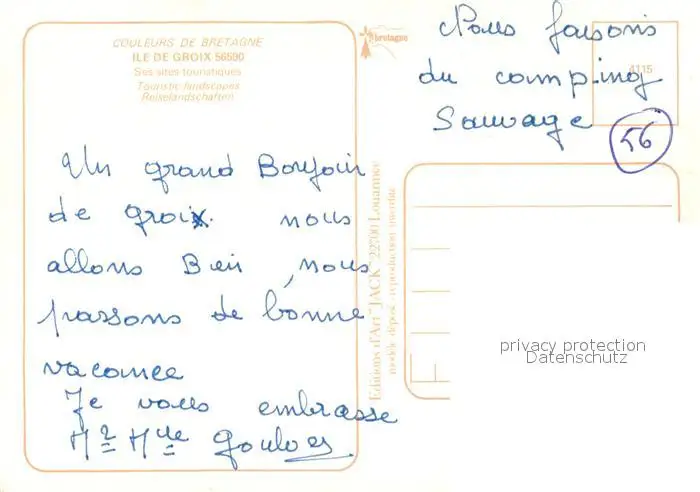 COULEURS DE BRETAGNE
ILE DE GROIX 56590
Ses sites touristiques
Touristic landscapes
Reiselandschaften
bretagne
4115
Nous faisons
du camping
Sauvage
56
Un grand Bonjour
de groix. nous
allons Bien, nous
passons de bonne
vacance
Je vous embrasse
Mr Mme
Editions d'Art "JACK" 22700 Louannec
modèle déposé - reproduction interdite
privacy protection
Datenschutz